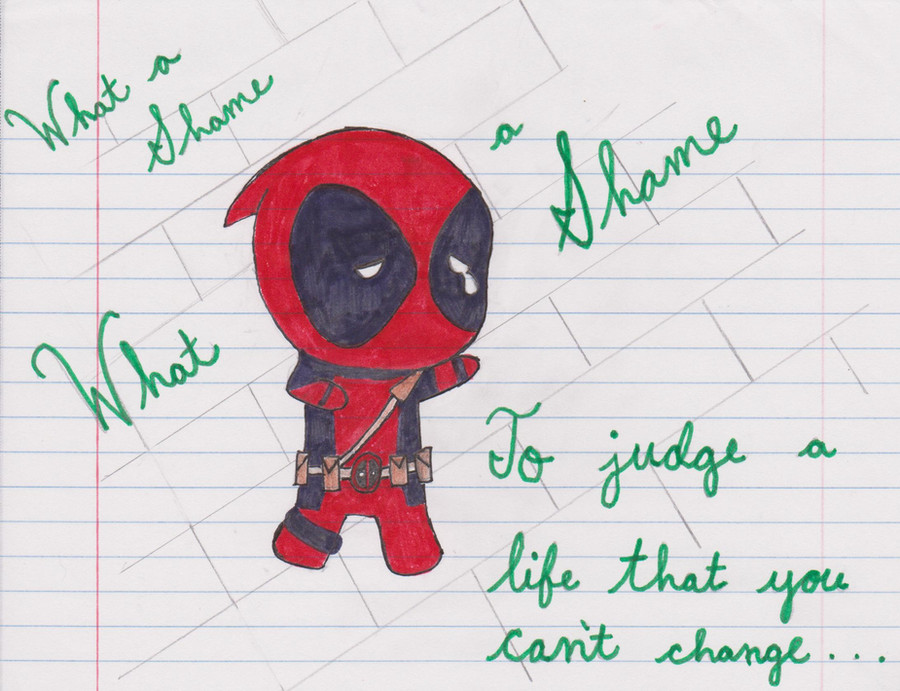 What a
Shame
What
a
Shame
To judge a
life that you
can't change...